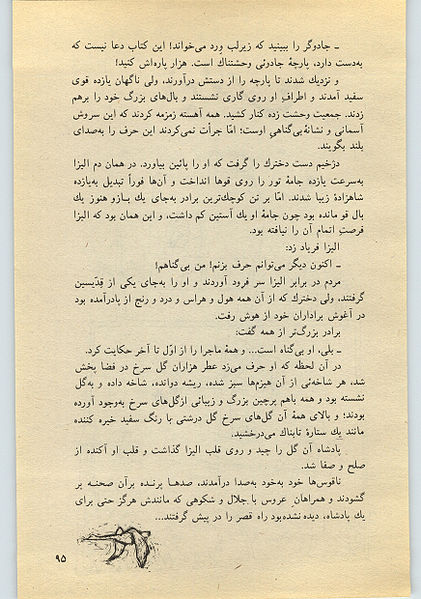 ـ جادوگر را ببینید که زیرلب ورد می‌خواند! این کتاب دعا نیست که
به‌دست دارد، پارچهٔ جادوئی وحشتناك است. هزار پاره‌اش کنید!
و نزدیك شدند تا پارچه را از دستش درآورند، ولی ناگهان یازده قوی
سفید آمدند و اطراف او روی گاری نشستند و بال‌های بزرگ خود را برهم
زدند. جمعیت وحشت زده کنار کشید. همه آهسته زمزمه کردند که این سروش
آسمانی و نشانهٔ بی‌گناهی اوست؛ امّا جرأت نمی‌کردند این حرف را به‌صدای
بلند بگویند.
دژخیم دست دخترك را گرفت که او را پائین بیاورد. در همان دم الیزا
به‌سرعت یازده جامهٔ تور را روی قوها انداخت و آن‌ها فوراً تبدیل به‌یازده
شاهزادهٔ زیبا شدند. امّا بر تن کوچك‌ترین برادر به‌جای یك بـازو هنوز یك
بال قو مانده بود چون جامهٔ او یك آستین کم داشت، و این همان بود که الیزا
فرصت اتمام آن را نیافته بود.
الیزا فریاد زد:
ـ اکنون دیگر می‌توانم حرف بزنم! من بی‌گناهم!
مردم در برابر الیزا سر فرود آوردند و او را به‌جای یکی از قدّیسین
گرفتند، ولی دخترك که از آن همه هول و هراس و درد و رنج از پادرآمده بود
در آغوش برادران خود از هوش رفت.
برادر بزرگ‌تر از همه گفت:
ـ بلی، او بی‌گناه است... و همهٔ ماجرا را از اوّل تا آخر حکایت کرد.
در آن لحظه که او حرف می‌زد عطر هزاران گل سرخ در فضا پخش
شد، هر شاخه‌ئی از آن هیزم‌ها سبز شده، ریشه دوانده، شاخه داده و به‌گل
نشسته بود و همه باهم پرچین بزرگ و زیبائی ازگل‌های سرخ به‌وجود آورده
بودند؛ و بالای همهٔ آن گل‌های سرخ گل درشتی با رنگ سفید خیره کننده
مانند یك ستارهٔ تابناك می‌درخشید.
پادشاه آن گل را چید و روی قلب الیزا گذاشت و قلب او آکنده از
صلح و صفا شد.
ناقوس‌ها خود به‌خود به‌صدا درآمدند، صدهـا پرنـده برآن صحنـه پر
گشودند و همراهان عروس با جلال و شکوهی که مانندش هرگز حتی برای
یك پادشاه، دیده نشده‌بود راه قصر را در پیش گرفتند...
۹۵